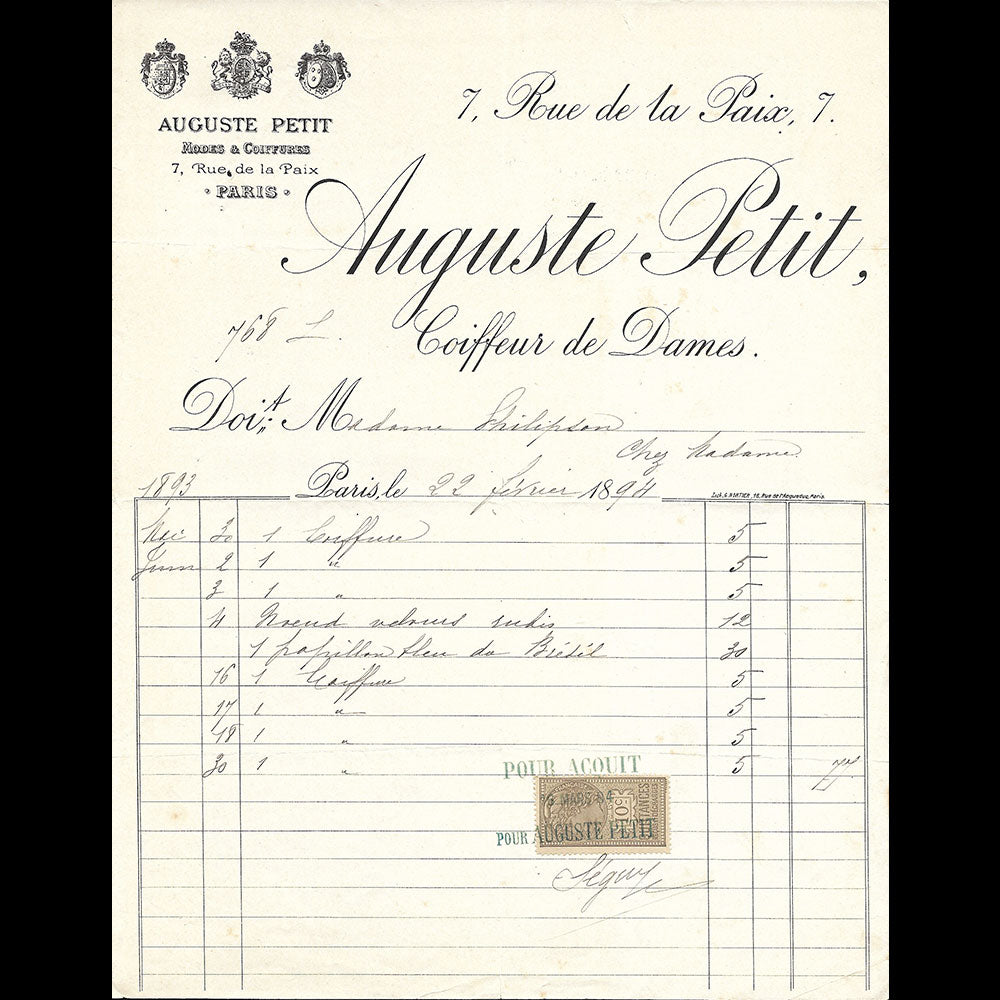 AUGUSTE PETIT
MODES & COIFFURES
7, Rue de la Paix
PARIS
7, Rue de la Paix, 7.
Auguste Petit,
768 L.
Coiffeur de Dames.
Doit: Madame Philipson
Chez Madame
1893 Paris, le 22 février 1894
Lith. G. NORTIER, 16, Rue de l'Aqueduc, Paris.
Mai 30 1 Coiffure 5
Juin 2 1 " 5
3 1 " 5
4 Noeud velours rubis 12
1 papillon bleu du Brésil 30
16 1 Coiffure 5
17 1 " 5
18 1 " 5
30 1 " 5 77
POUR ACQUIT
MARS 94
10c
POUR AUGUSTE PETIT
Séguy